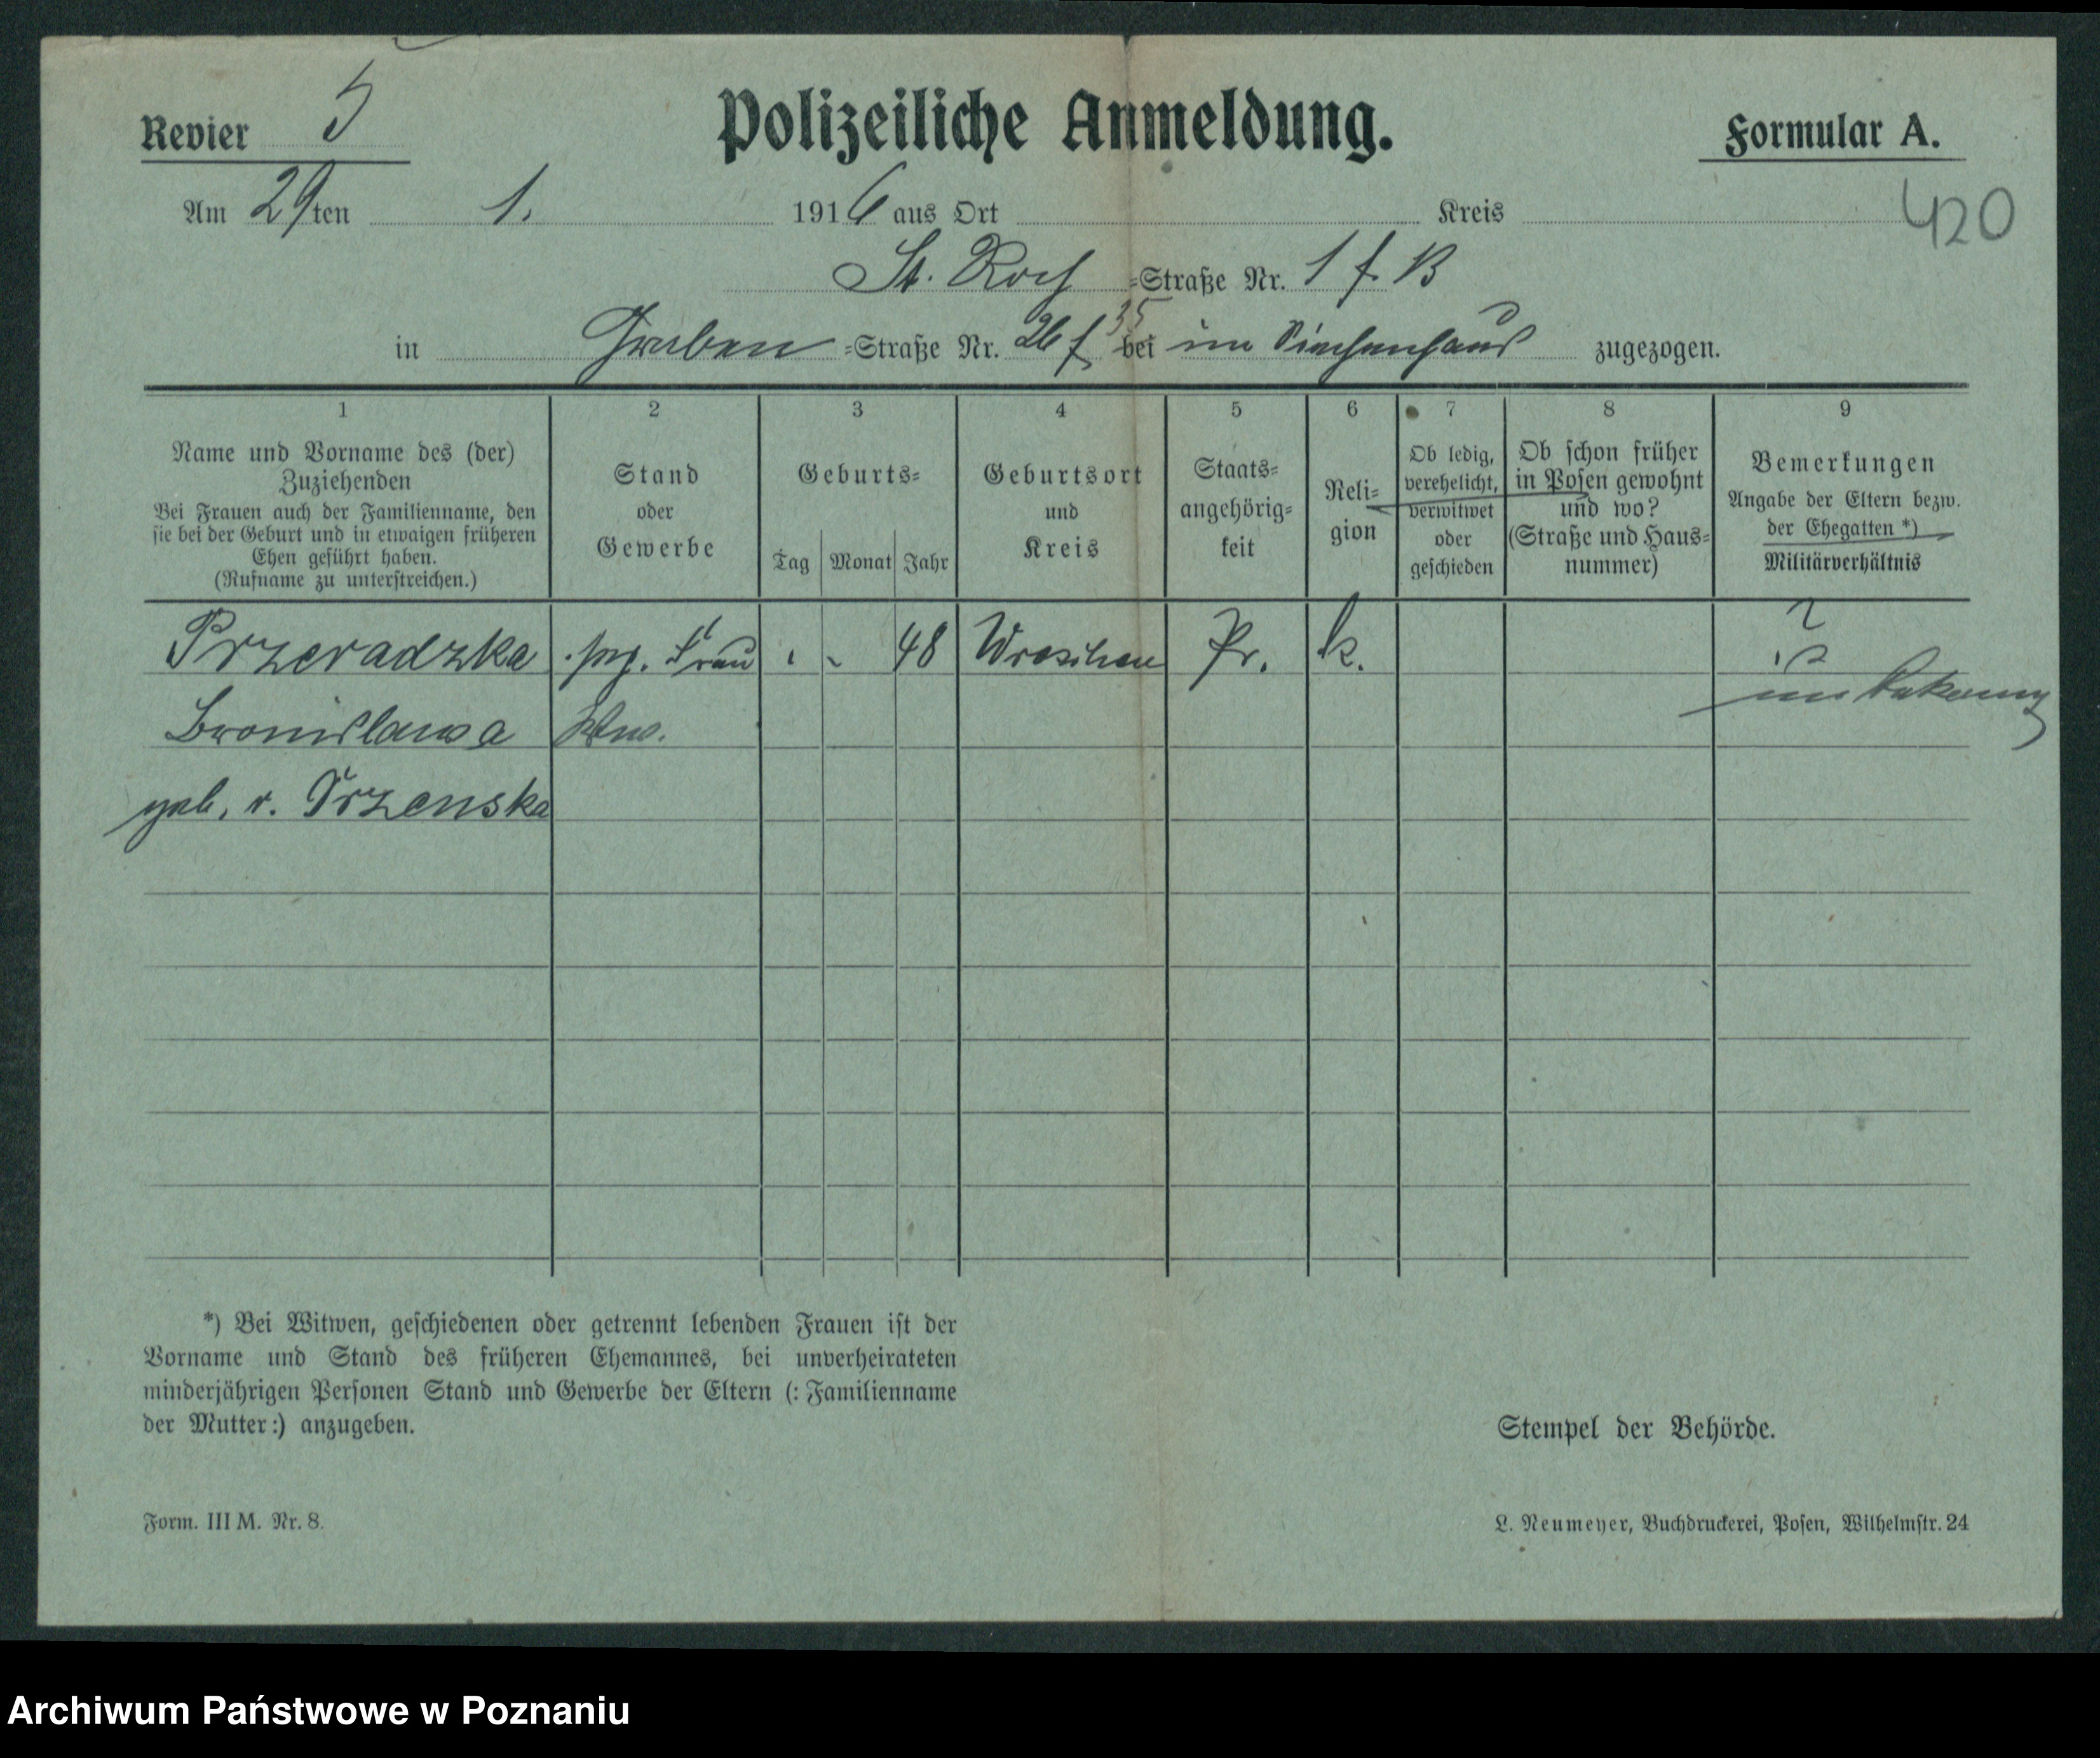 Revier 5
Polizeiliche Anmeldung.
Formular A.
Am 29ten 1. 1916 aus Ort Kreis
420
St. Roch =Straße Nr. 1 f. B
35
in Graben =Straße Nr. 26 f bei im Siechenhaus zugezogen.
1 2 3 4 5 6 7 8 9
Name und Vorname des (der)
Zuziehenden
Bei Frauen auch der Familienname, den
sie bei der Geburt und in etwaigen früheren
Ehen geführt haben.
(Rufname zu unterstreichen.)
Stand
oder
Gewerbe
Geburts=
Tag Monat Jahr
Geburtsort
und
Kreis
Staats=
angehörig=
keit
Reli=
gion
Ob ledig,
verehelicht,
verwitwet
oder
geschieden
Ob schon früher
in Posen gewohnt
und wo?
(Straße und Haus=
nummer)
Bemerkungen
Angabe der Eltern bezw.
der Ehegatten *)
Militärverhältnis
Przeradzka Frau 48 Wreschen Pr. k. ?
Bronislawa Ww.
geb. v. Trzenska
*) Bei Witwen, geschiedenen oder getrennt lebenden Frauen ist der
Vorname und Stand des früheren Ehemannes, bei unverheirateten
minderjährigen Personen Stand und Gewerbe der Eltern (: Familienname
der Mutter :) anzugeben.
Stempel der Behörde.
Form. III M. Nr. 8.
L. Neumeyer, Buchdruckerei, Posen, Wilhelmstr. 24
Archiwum Państwowe w Poznaniu